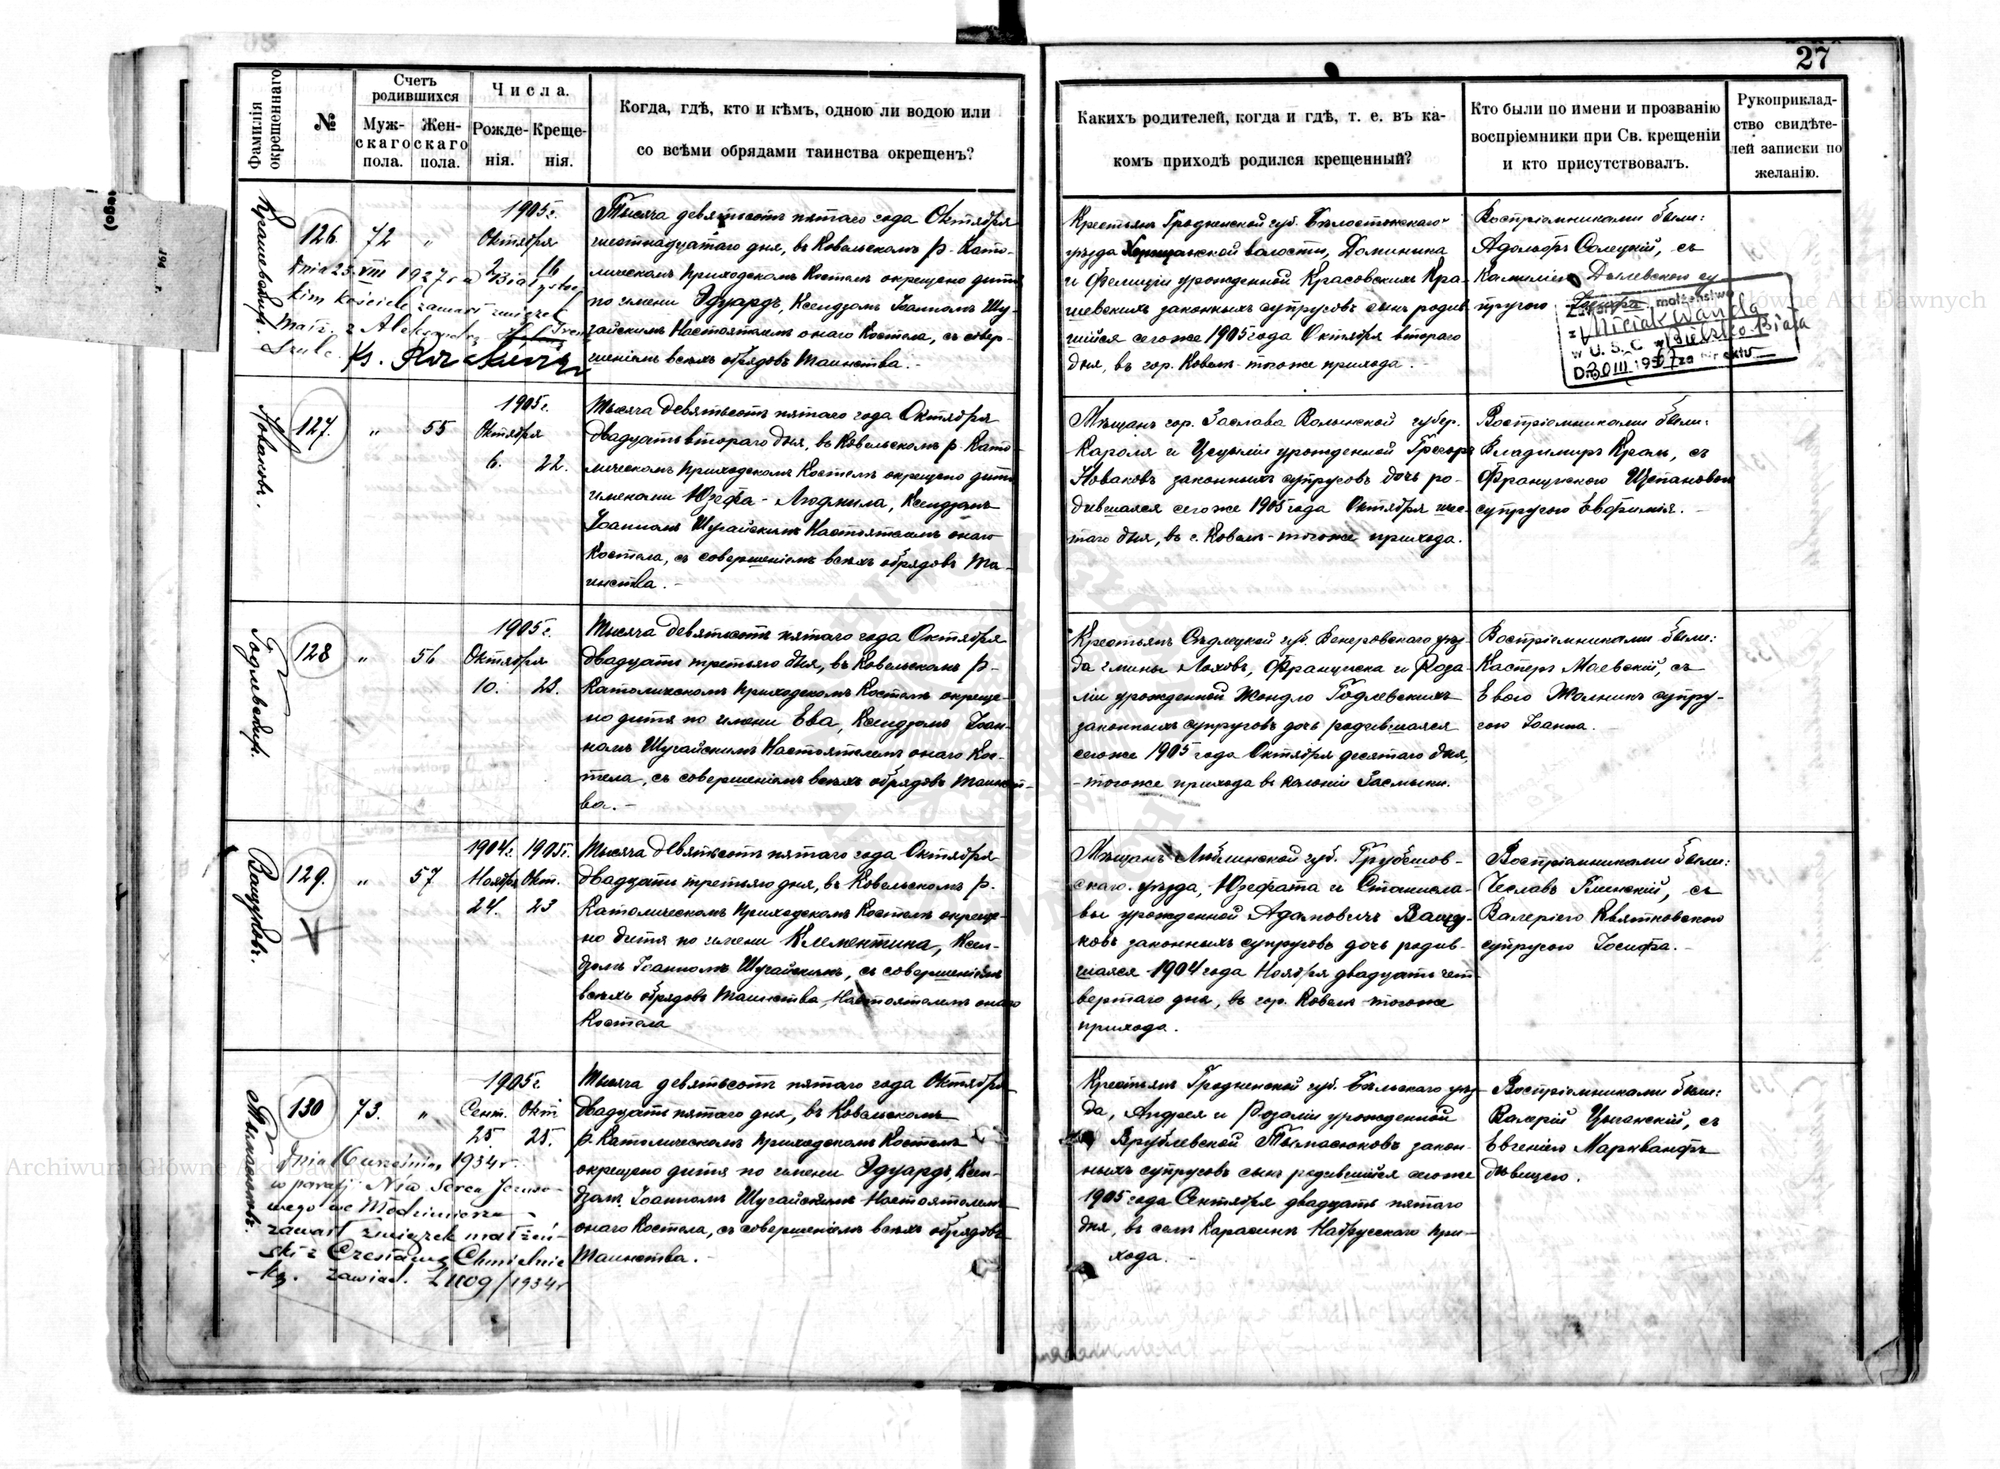 27
Фамилія окрещеннаго.
№
Счетъ родившихся
Муж-скаго пола.
Жен-скаго пола.
Числа.
Рожде-нія.
Креще-нія.
Когда, гдѣ, кто и кѣмъ, одною ли водою или
со всѣми обрядами таинства окрещенъ?
Какихъ родителей, когда и гдѣ, т. е. въ ка-
комъ приходѣ родился крещенный?
Кто были по имени и прозванію
воспріемники при Св. крещеніи
и кто присутствовалъ.
Рукоприклад-
ство свидѣте-
лей записки по
желанію.
126.
72
"
1905 г.
Октября
2
16
Тысяча девятьсотъ пятаго года Октября
шестнадцатаго дня, въ Ковельскомъ р. Като-
лическомъ Приходскомъ Костелѣ окрещено дитя
по имени Эдуардъ, Ксендзомъ Іоанномъ Шу-
гайскимъ Настоятелемъ онаго Костела, съ совер-
шеніемъ всѣхъ обрядовъ Таинства.
Крестьянъ Гродненской губ. Бѣлостокскаго
уѣзда волости, Доминика
и Фелиціи урожденной Красовскихъ Кра-
шевскихъ законныхъ супруговъ сынъ родив-
шійся сего же 1905 года Октября втораго
дня, въ гор. Ковель тогоже прихода.
Воспріемниками были:
Адольфъ Солецкій, съ
Дылевской су
пругою
małżeństwo
z Miciak Wandą
w U.S.C. w Bielsko Biała
dnia 25 VIII 1927 r. w Białystoc
kim kościele zawarł związek
małż. z Aleksandrą
Szulc.
Новаковъ.
127.
"
55
1905 г.
Октября
6.
22.
Тысяча девятьсотъ пятаго года Октября
двадцать втораго дня, въ Ковельскомъ р. Като-
лическомъ Приходскомъ Костелѣ окрещено дитя
именами Юзефа-Людмила, Ксендзомъ
Іоанномъ Шугайскимъ Настоятелемъ онаго
Костела, съ совершеніемъ всѣхъ обрядовъ Та-
инства.
Мѣщанъ гор. Заслава Волынской губер.
Кароля и Цециліи урожденной Грегоръ
Новаковъ законныхъ супруговъ дочь ро-
дившаяся сего же 1905 года Октября шес-
таго дня, въ г. Ковель тогоже прихода.
Воспріемниками были:
Владиміръ Краль, съ
Францискою Щепановою
супругою Евфимія.
Годлевскій.
128
"
56
1905 г.
Октября
10.
23.
Тысяча девятьсотъ пятаго года Октября
двадцать третьяго дня, въ Ковельскомъ р.-
Католическомъ Приходскомъ Костелѣ окреще-
но дитя по имени Ева, Ксендзомъ Іоан-
номъ Шугайскимъ Настоятелемъ онаго Кос-
тела, съ совершеніемъ всѣхъ обрядовъ Таинст-
ва.
Крестьянъ Сѣдлецкой губ. Венгровскаго уѣз-
да гмины Лоховъ, Франциска и Роза-
ліи урожденной Жондло Годлевскихъ
законныхъ супруговъ дочь родившаяся
сегоже 1905 года Октября десятаго дня,
тогоже прихода въ колоніи Засмыки.
Воспріемниками были:
Касперъ Маевскій, съ
Евою супру-
гою Іоанна.
Ващуковъ.
129.
"
57
1904 г.
1905 г.
Ноября
Окт.
24.
23
Тысяча девятьсотъ пятаго года Октября
двадцать третьяго дня, въ Ковельскомъ р.
Католическомъ Приходскомъ Костелѣ окреще-
но дитя по имени Клементина, Ксен-
дзомъ Іоанномъ Шугайскимъ, съ совершеніемъ
всѣхъ обрядовъ Таинства, Настоятелемъ онаго
Костела
Мѣщанъ Люблинской губ. Грубешов-
скаго уѣзда, Юзефата и Станисла-
вы урожденной Адамовичъ Ващу-
ковъ законныхъ супруговъ дочь родив-
шаяся 1904 года Ноября двадцать чет-
вертаго дня, въ гор. Ковель тогоже
прихода.
Воспріемниками были:
Чеславъ Глинскій, съ
Валеріею Квятковскою
супругою Іосифа.
130
73.
"
1905 г.
Сент.
Окт
25.
25.
Тысяча девятьсотъ пятаго года Октября
двадцать пятаго дня, въ Ковельскомъ
р. Католическомъ Приходскомъ Костелѣ
окрещено дитя по имени Эдуардъ, Ксен-
дзомъ Іоанномъ Шугайскимъ Настоятелемъ
онаго Костела, съ совершеніемъ всѣхъ обрядовъ
Таинства.
Крестьянъ Гродненской губ. Бѣльскаго уѣз-
да, Андрея и Розаліи урожденной
Врублевской законн-
ныхъ супруговъ сынъ родившійся сегоже
1905 года Сентября двадцать пятаго
дня, въ селѣ Карасинъ Набрусскаго при-
хода.
Воспріемниками были:
Валерій Цыганскій, съ
Евгеніею Марквандтъ
дѣвицею.
dnia 16 września 1934 r.
w parafj Nŝw. Serca Jezuso-
wego we Włodzimierzu
zawarł związek małżeń-
ski z Czesławą Chmielnic
ką. zawiad. L 1109/1934 r
Archiwum Główne Akt Dawnych